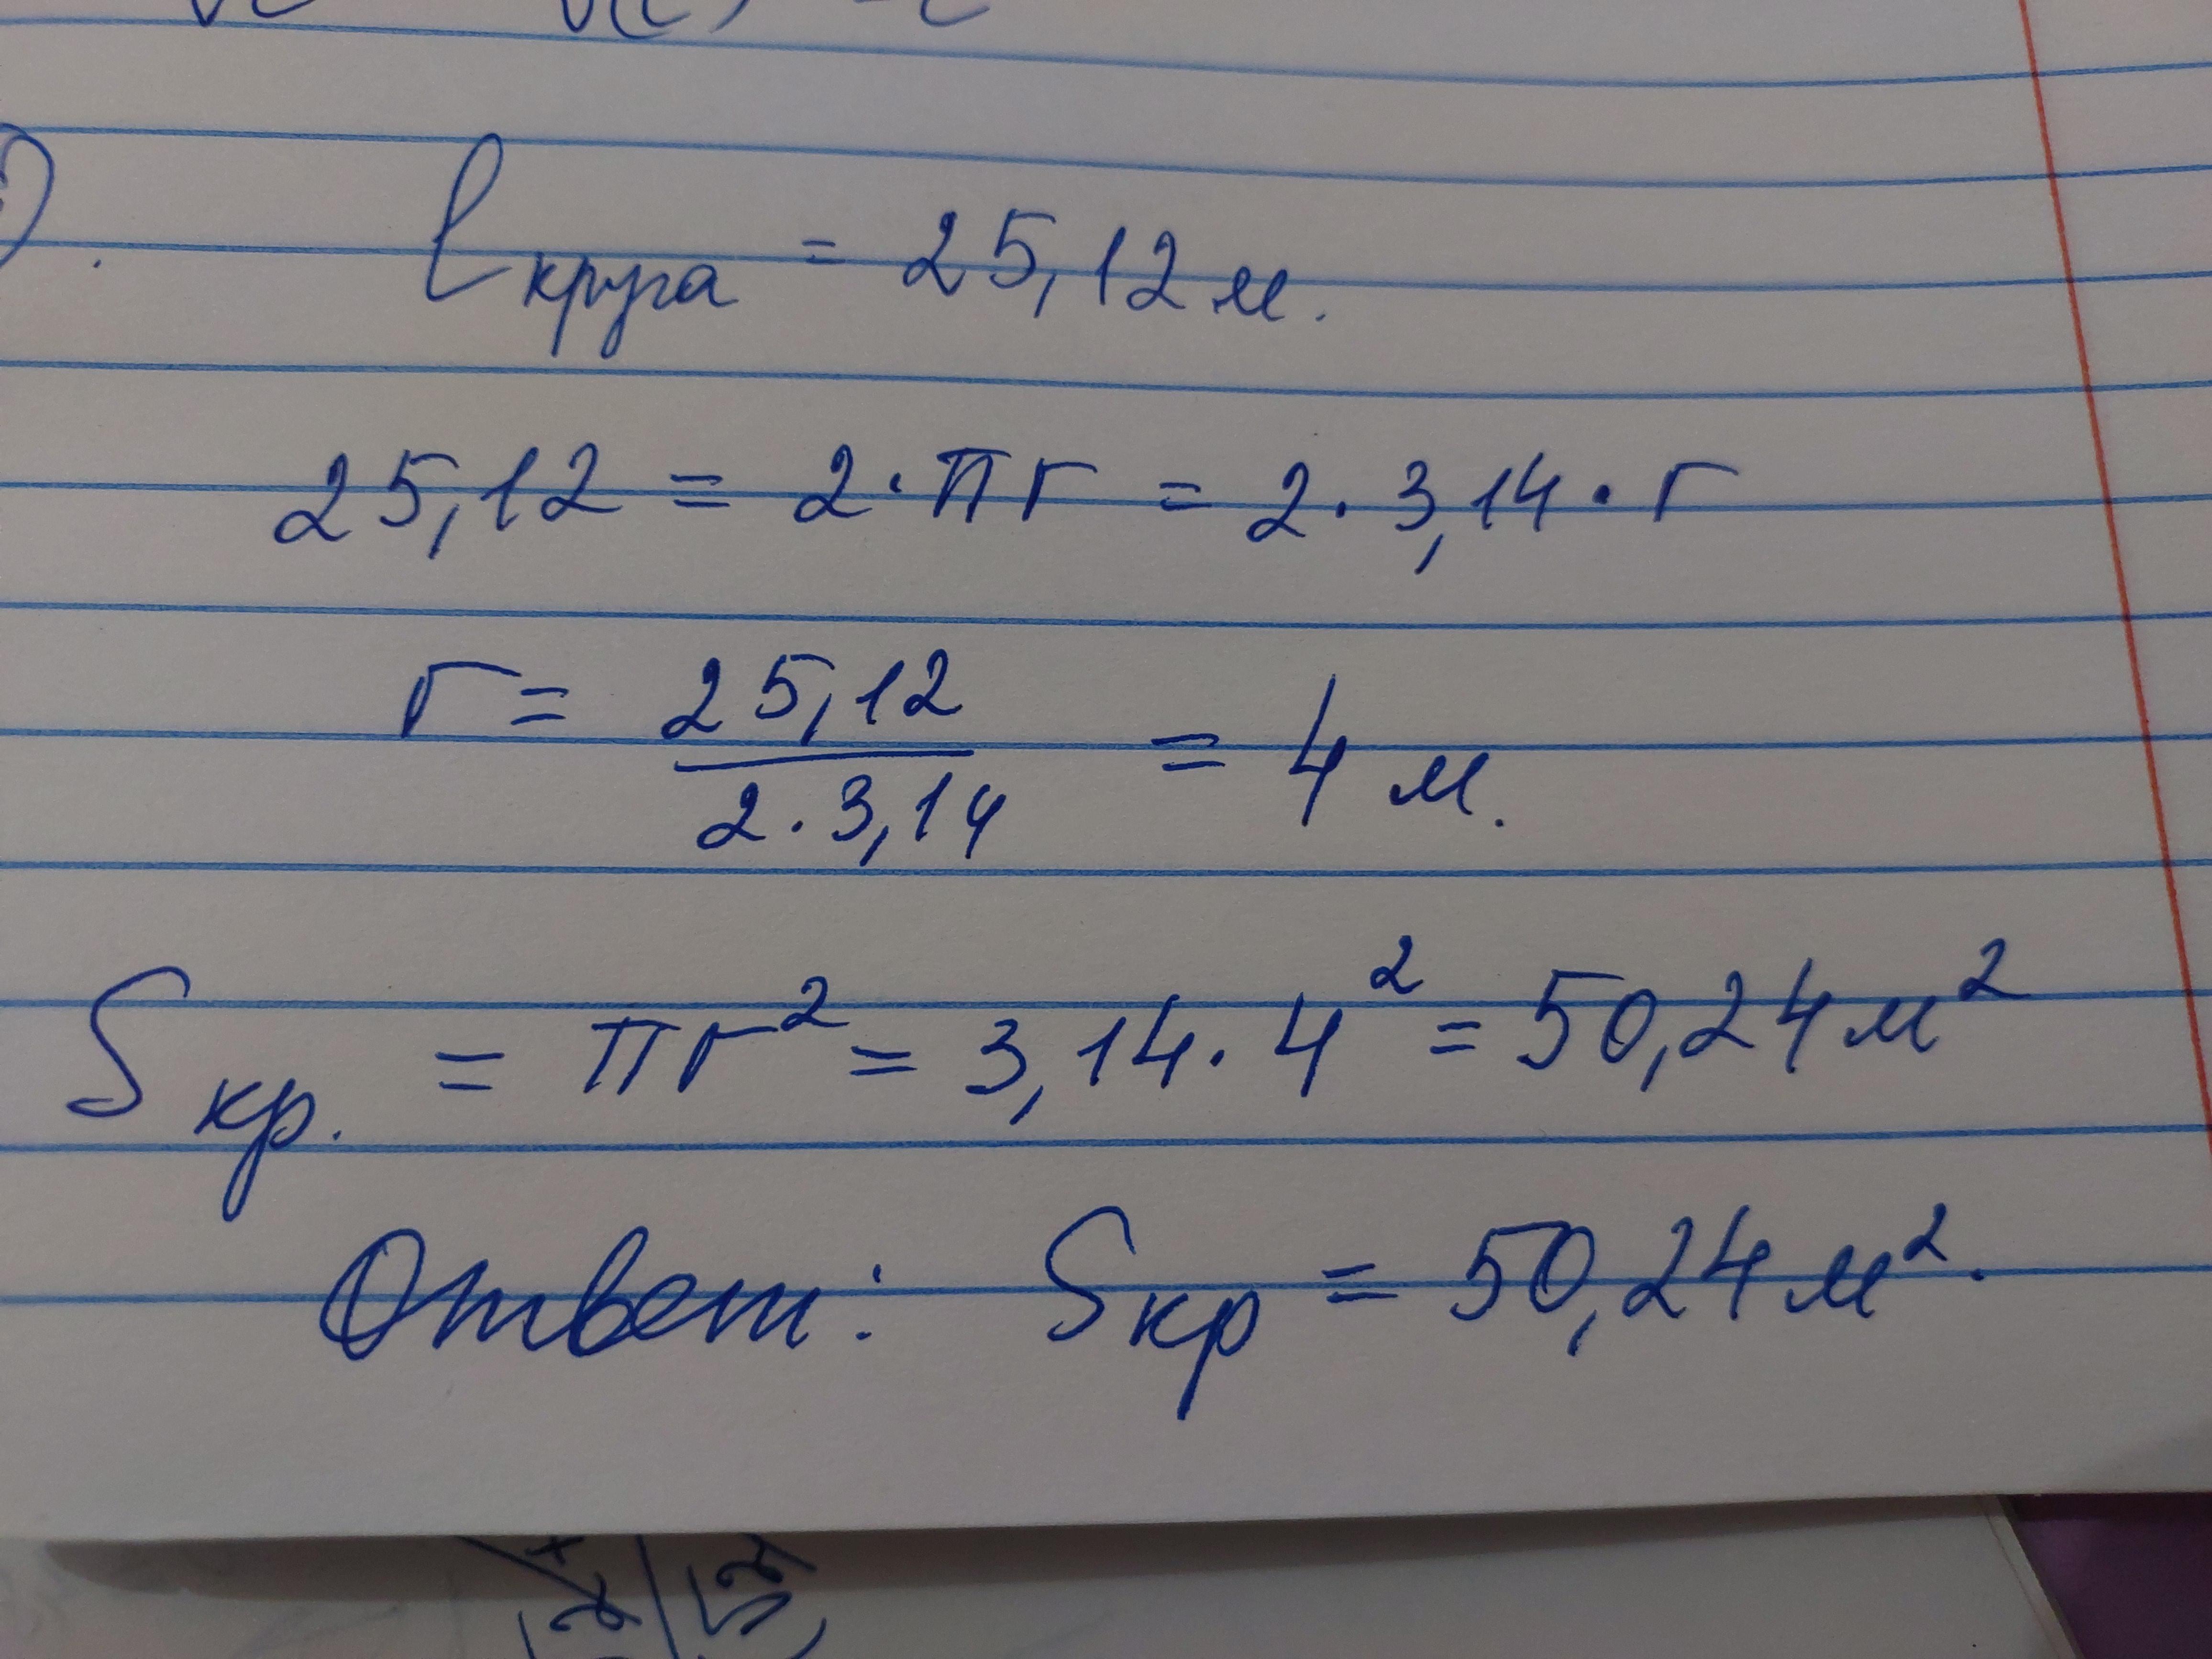 l круга = 25,12 м.
25,12 = 2·πr = 2·3,14·r
r = 25,12 / 2·3,14 = 4 м.
S кр. = πr² = 3,14·4² = 50,24 м²
Ответ: S кр = 50,24 м².